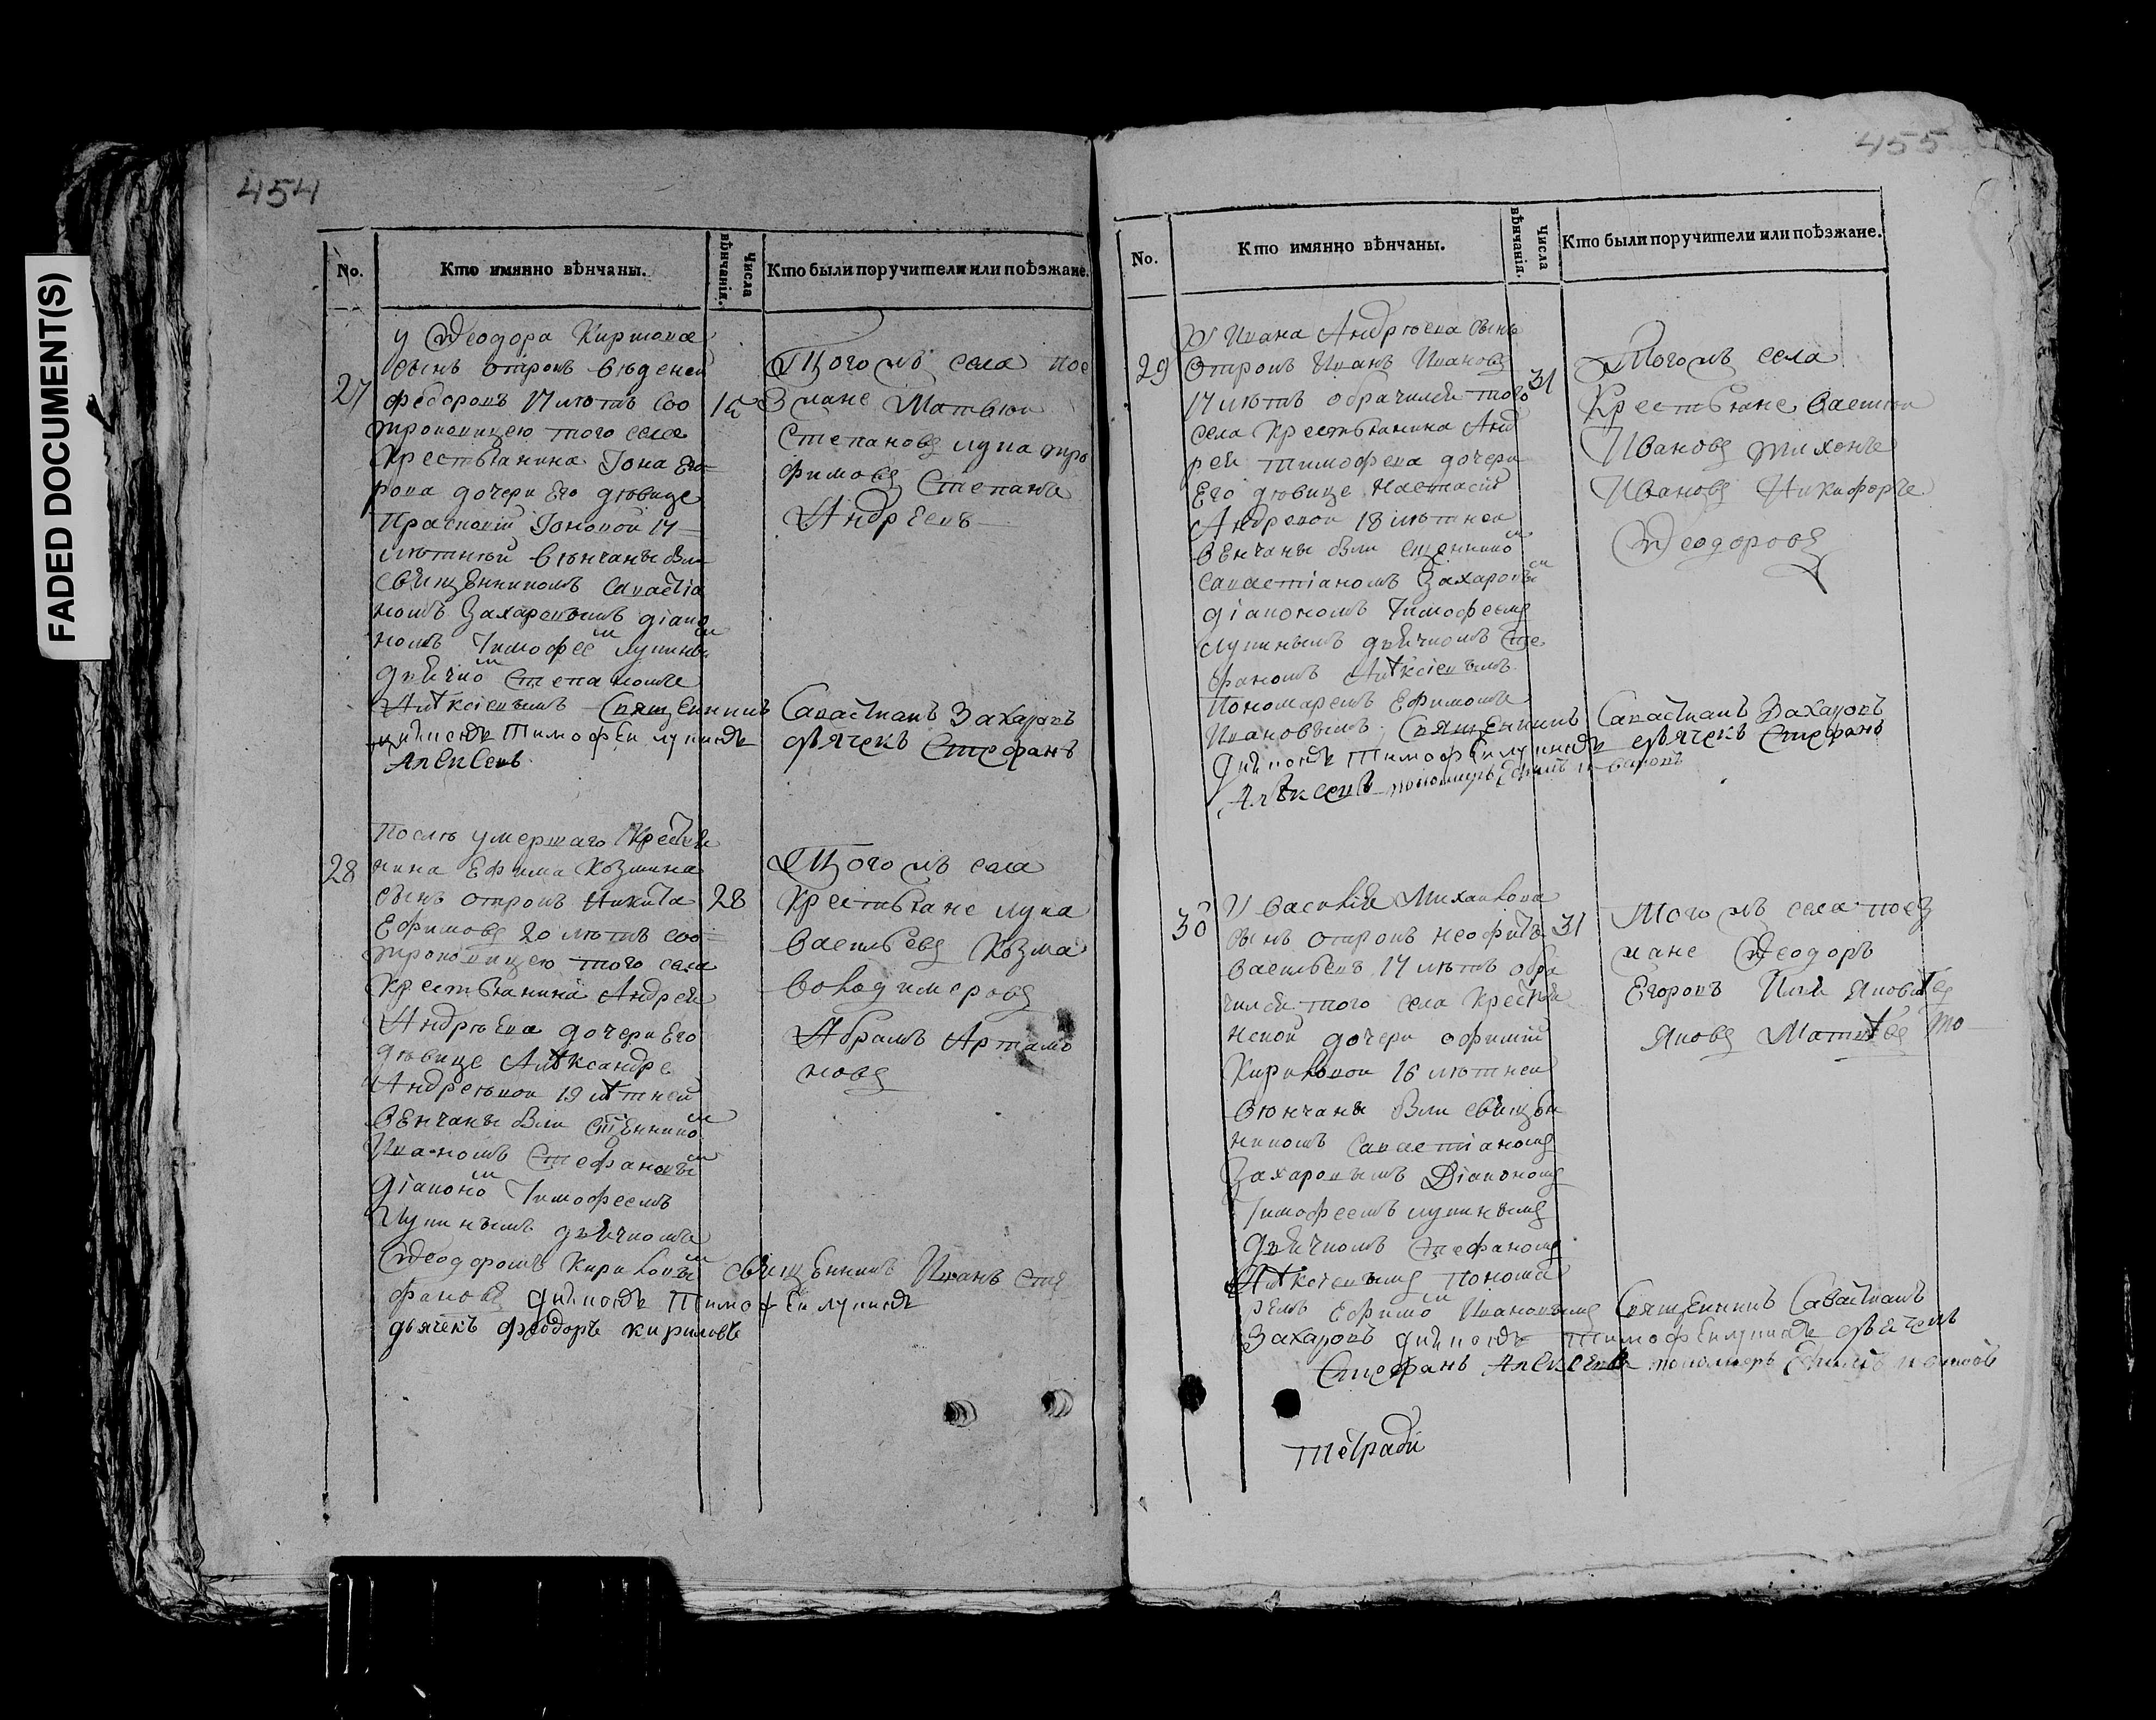 FADED DOCUMENT(S)
454
No.
Кто имянно вѣнчаны.
Числа вѣнчанія.
Кто были поручители или поѣзжане.
27
у Ѳеодора
сынъ отрокъ
Федоровъ 17 лѣтъ соо
трокопицею того села
Крестьянина Іона Его
рова дочери Его дѣвице
Іоновой 17
лѣтней вѣнчаны
священникомъ Савастіа
номъ Захаровымъ діако
номъ Тимофеем Лупиным
дьячком Степаномъ
Алѣксіевымъ Священникъ Савастианъ Захаровъ
Тимофей Лупинъ дьячекъ Стефанъ
Алексеевъ
15
Того жъ села пое
зжане Матвей
Степановъ Лупа Тро
фимовъ Степанъ
Андреевъ
28
После умершаго Крестья
нина Ефима Козмина
сынъ отрокъ Никита
Ефимовъ 20 лѣтъ соо
трокопицею того села
Крестьянина Андрея
Андрѣева дочери Его
дѣвице Алѣксандре
Андреевой 19 лѣтней
вѣнчаны были
Иваномъ Стефановым
діаконом Тимофеемъ
Лупинымъ дьячкомъ
Ѳеодоромъ Кириловым священникъ Иванъ Сте
фановъ Тимофей Лупинъ
дьячекъ Феодоръ Кириловъ
28
Того жъ села
Крестьяне Лука
Васильевъ Козма
Володимеровъ
Абрамъ Артамо
новъ
455
No.
Кто имянно вѣнчаны.
Числа вѣнчанія.
Кто были поручители или поѣзжане.
29
У Ивана Андрѣева сынъ
отрокъ Иванъ Ивановъ
17 лѣтъ обрачился того
села Крестьянина Анд
рея Тимофева дочери
Его дѣвице Настасіи
Андревой 18 лѣтней
вѣнчаны были
Савастіаномъ Захаровым
діакономъ Тимофеемъ
Лупинымъ дьячкомъ Сте
фаномъ Алѣксіевымъ
Пономаремъ Ефимомъ
Ивановымъ Священникъ Савастианъ Захаровъ
Тимофей Лупинъ дьячекъ Стефанъ
Алѣксеевъ пономарь Ефимъ Ивановъ
31
Того жъ села
Крестьяне Василей
Ивановъ Тихонъ
Ивановъ Никифоръ
Ѳеодоровъ
30
У Василія Михайлова
сынъ отрокъ Неофитъ
Васильевъ 17 лѣтъ обра
чился того села Крестья
нской дочери Офиміи
Кириловой 16 лѣтней
вѣнчаны были священ
никомъ Савастіаномъ
Захаровымъ Діакономъ
Тимофеемъ Лупинымъ
дьячкомъ Стефаномъ
Алѣксіевымъ Понома
ремъ Ефимом Ивановымъ Священникъ Савастианъ
Захаровъ Тимофей Лупинъ дьячекъ
Стефанъ Алексеевъ пономарь Ефимъ Ивановъ
31
Того жъ села поез
жане Ѳеодоръ
Егоровъ Илья Яковлев
Яковъ Матвѣев
тетради